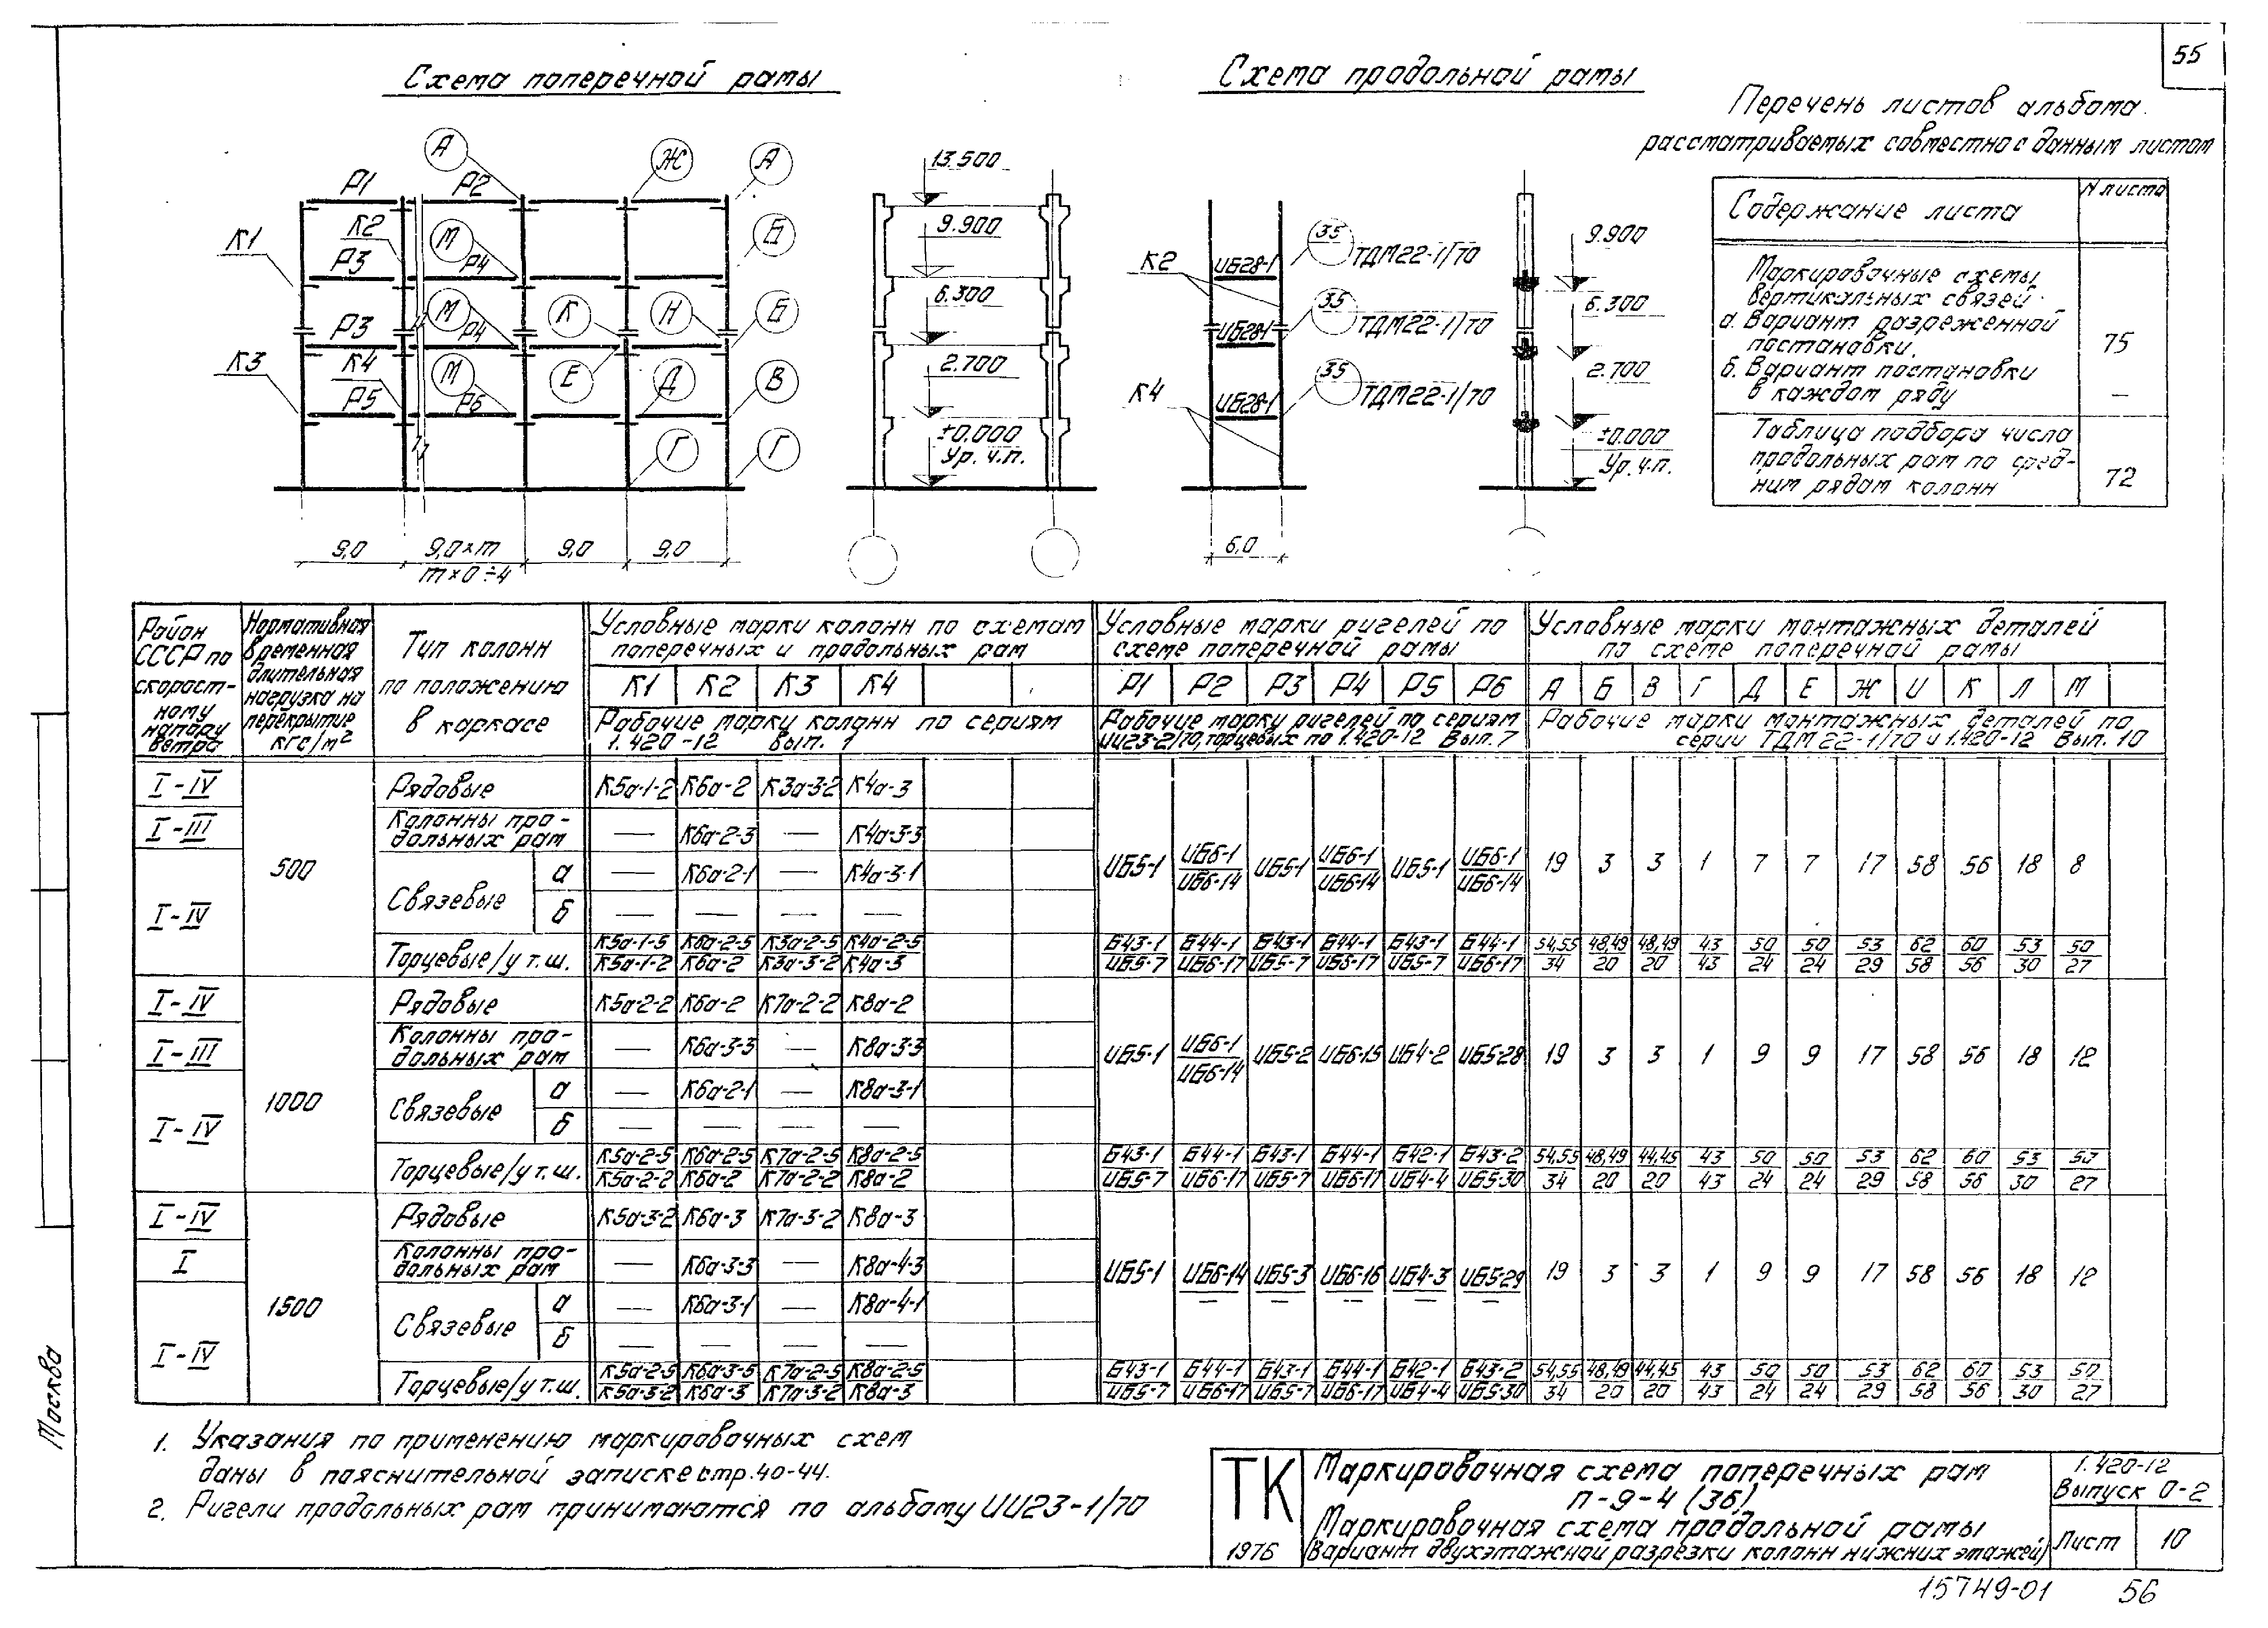 55
Схема поперечной рамы
Схема продольной рамы
Перечень листов альбома
рассматриваемых совместно с данным листом
Содержание листа
N листа
Маркировочные схемы
вертикальных связей
а. Вариант разреженной
постановки.
75
б. Вариант постановки
в каждом ряду
—
Таблица подбора числа
продольных рам по сред-
ним рядам колонн
72
А Ж А
Р1 Р2
К1 К2 М Б
Р3 Р4
М К Н Б
Р3 Р4
К3 К4 М Е Д В
Р5 Р6
Г Г
9,0 9,0×m 9,0 9,0
m×0÷4
13.500
9.900
6.300
2.700
±0.000
Ур. ч.п.
К2 ИБ28-1 35 ТДМ22-1/70
ИБ28-1 35 ТДМ22-1/70
К4 ИБ28-1 35 ТДМ22-1/70
6,0
9.900
6.300
2.700
±0.000
Ур. ч.п.
Район СССР по скорост-ному напору ветра
Нормативная временная длительная нагрузка на перекрытие кгс/м²
Тип колонн по положению в каркасе
Условные марки колонн по схемам поперечных и продольных рам
К1 К2 К3 К4
Рабочие марки колонн по сериям 1.420-12 вып. 1
Условные марки ригелей по схеме поперечной рамы
Р1 Р2 Р3 Р4 Р5 Р6
Рабочие марки ригелей по сериям ИИ23-2/70, торцевых по 1.420-12 Вып. 7
Условные марки монтажных деталей по схеме поперечной рамы
А Б В Г Д Е Ж И К Л М
Рабочие марки монтажных деталей по серии ТДМ 22-1/70 и 1.420-12 Вып. 10
I-IV 500 Рядовые К5а-1-2 К6а-2 К3а-3-2 К4а-3
I-III Колонны про-дольных рам — К6а-2-3 — К4а-3-3
I-IV Связевые а — К6а-2-1 — К4а-3-1
б — — — —
ИБ5-1 ИБ6-1/ИБ6-14 ИБ5-1 ИБ6-1/ИБ6-14 ИБ5-1 ИБ6-1/ИБ6-14 19 3 3 1 7 7 17 58 56 18 8
Торцевые/у т.ш. К5а-1-5/К5а-1-2 К6а-2-5/К6а-2 К3а-2-5/К3а-3-2 К4а-2-5/К4а-3 Б43-1/ИБ5-7 Б44-1/ИБ6-17 Б43-1/ИБ5-7 Б44-1/ИБ6-17 Б43-1/ИБ5-7 Б44-1/ИБ6-17 54,55/34 48,49/20 48,49/20 43/43 50/24 50/24 53/29 62/58 60/56 53/30 50/27
I-IV 1000 Рядовые К5а-2-2 К6а-2 К7а-2-2 К8а-2
I-III Колонны про-дольных рам — К6а-3-3 — К8а-3-3
I-IV Связевые а — К6а-2-1 — К8а-3-1
б — — — —
ИБ5-1 ИБ6-1/ИБ6-14 ИБ5-2 ИБ6-15 ИБ4-2 ИБ5-28 19 3 3 1 9 9 17 58 56 18 12
Торцевые/у т.ш. К5а-2-5/К5а-2-2 К6а-2-5/К6а-2 К7а-2-5/К7а-2-2 К8а-2-5/К8а-2 Б43-1/ИБ5-7 Б44-1/ИБ6-17 Б43-1/ИБ5-7 Б44-1/ИБ6-17 Б42-1/ИБ4-4 Б43-2/ИБ5-30 54,55/34 48,49/20 44,45/20 43/43 50/24 50/24 53/29 62/58 60/56 53/30 50/27
I-IV 1500 Рядовые К5а-3-2 К6а-3 К7а-3-2 К8а-3
I Колонны про-дольных рам — К6а-3-3 — К8а-4-3
I-IV Связевые а — К6а-3-1 — К8а-4-1
б — — — —
ИБ5-1 ИБ6-14/— ИБ5-3/— ИБ6-16/— ИБ4-3/— ИБ5-29/— 19 3 3 1 9 9 17 58 56 18 12
Торцевые/у т.ш. К5а-2-5/К5а-3-2 К6а-3-5/К6а-3 К7а-2-5/К7а-3-2 К8а-2-5/К8а-3 Б43-1/ИБ5-7 Б44-1/ИБ6-17 Б43-1/ИБ5-7 Б44-1/ИБ6-17 Б42-1/ИБ4-4 Б43-2/ИБ5-30 54,55/34 48,49/20 44,45/20 43/43 50/24 50/24 53/29 62/58 60/56 53/30 50/27
1. Указания по применению маркировочных схем
даны в пояснительной записке стр. 40-44.
2. Ригели продольных рам принимаются по альбому ИИ23-1/70
Москва
ТК
1976
Маркировочная схема поперечных рам
п-9-4 (36)
Маркировочная схема продольной рамы
(Вариант двухэтажной разрезки колонн нижних этажей)
1.420-12
Выпуск 0-2
Лист 10
15749-01 56